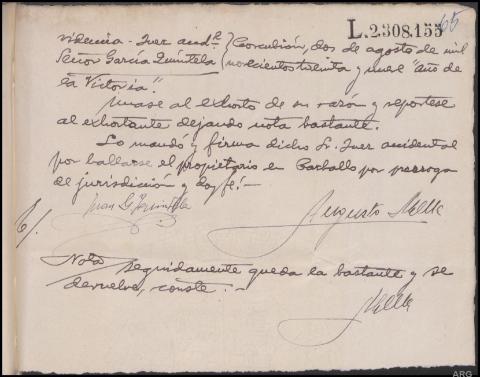 L.2.308.155
65
videncia - Juez acdtl } Corcubión, dos de agosto de mil
Señor García Quintela } novecientos treinta y nueve "Año de
la Victoria".
Unase al exhorto de su razón y repórtese
al exhortante dejando nota bastante.
Lo mandó y firma dicho Sr. Juez accidental
por hallarse el propietario en Carballo por prorroga
de jurisdicción y doy fé.-
Juan G Quintela
Augusto
Nota
seguidamente queda la bastante y se
devuelve, conste.-
ARG